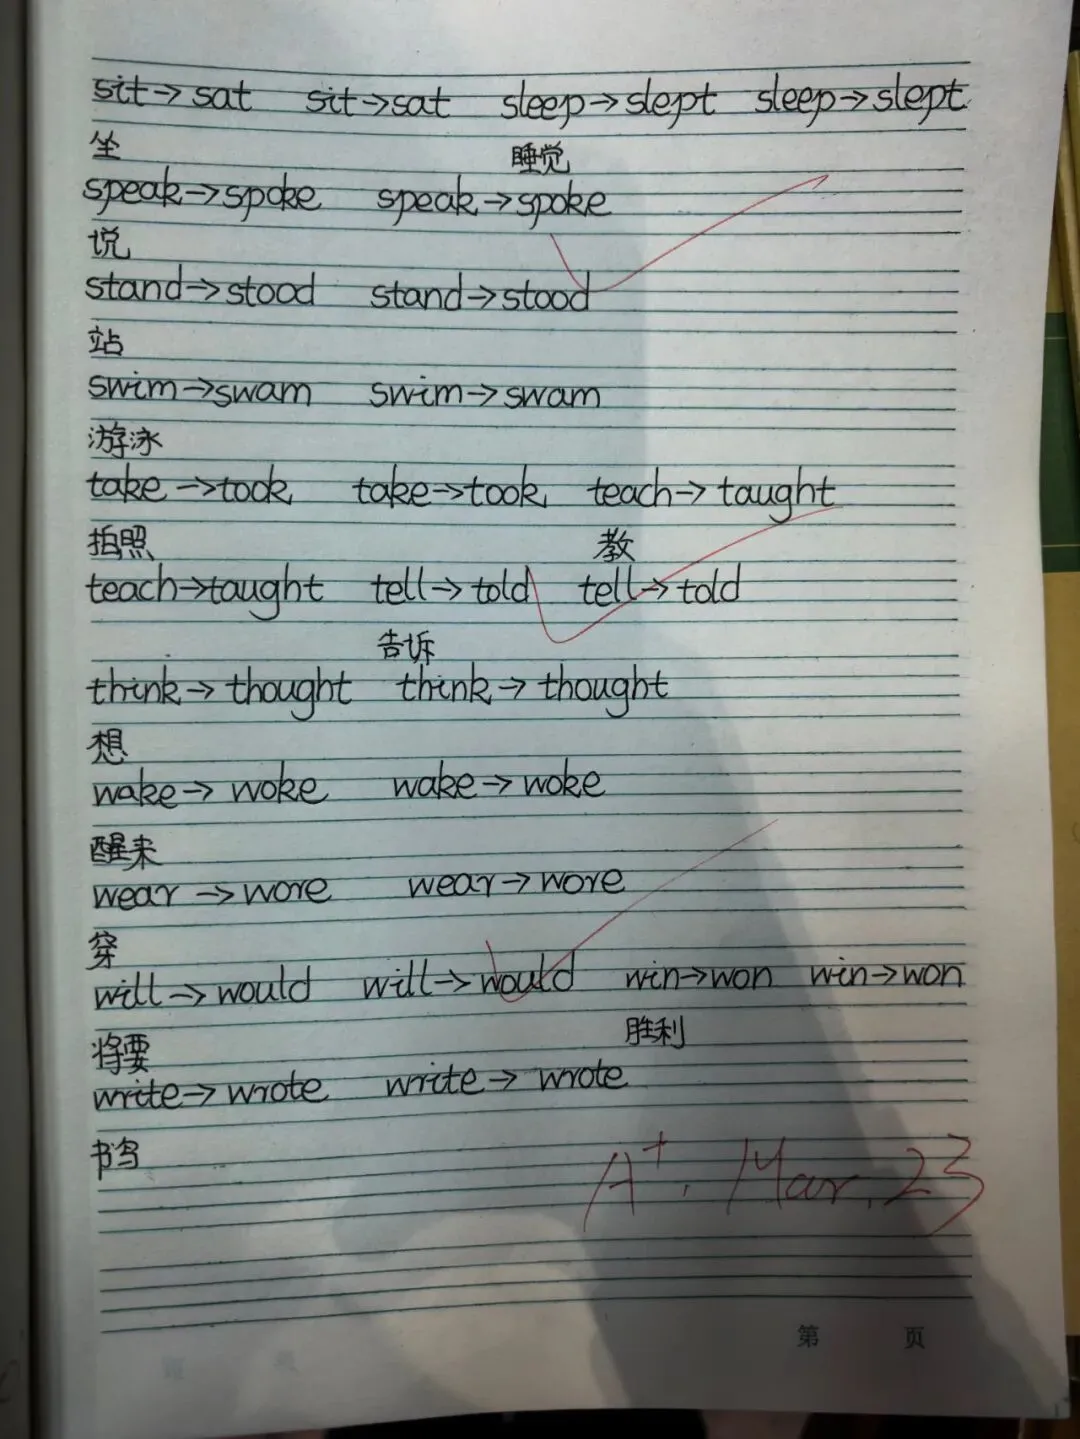 sit→sat sit→sat sleep→slept sleep→slept
坐 睡觉
speak→spoke speak→spoke
说
stand→stood stand→stood
站
swim→swam swim→swam
游泳
take→took take→took teach→taught
拍照 教
teach→taught tell→told tell→told
告诉
think→thought think→thought
想
wake→woke wake→woke
醒来
wear→wore wear→wore
穿
will→would will→would win→won win→won
将要 胜利
write→wrote write→wrote
书写
A+. Mar. 23
第 页